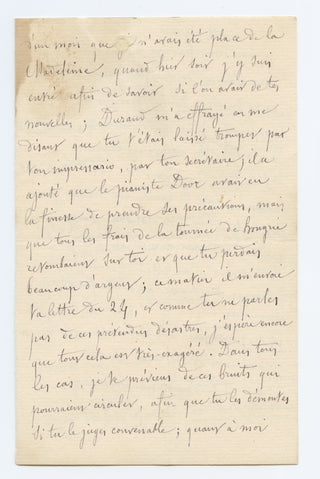 d'un mois que je n'avais été place de la
Madeleine, quand hier soir j'y suis
entré afin de savoir si l'on avait de tes
nouvelles ; Durand m'a effrayé en me
disant que tu t'étais laissé tromper par
ton impressario, par ton secretaire ; il a
ajouté que le pianiste Door avait eu
la finesse de prendre ses précautions, mais
que tous les frais de la tournée de hongrie
retombaient sur toi et que tu perdais
beaucoup d'argent ; ce matin il m'envoie
ta lettre du 24, et comme tu ne parles
pas de ces prétendus désastres, j'espère encore
que tout cela est très-exagéré. Dans tous
les cas, je te préviens de ces bruits qui
pourraient circuler, afin que tu les démentes
si tu le juges convenable ; quant à moi